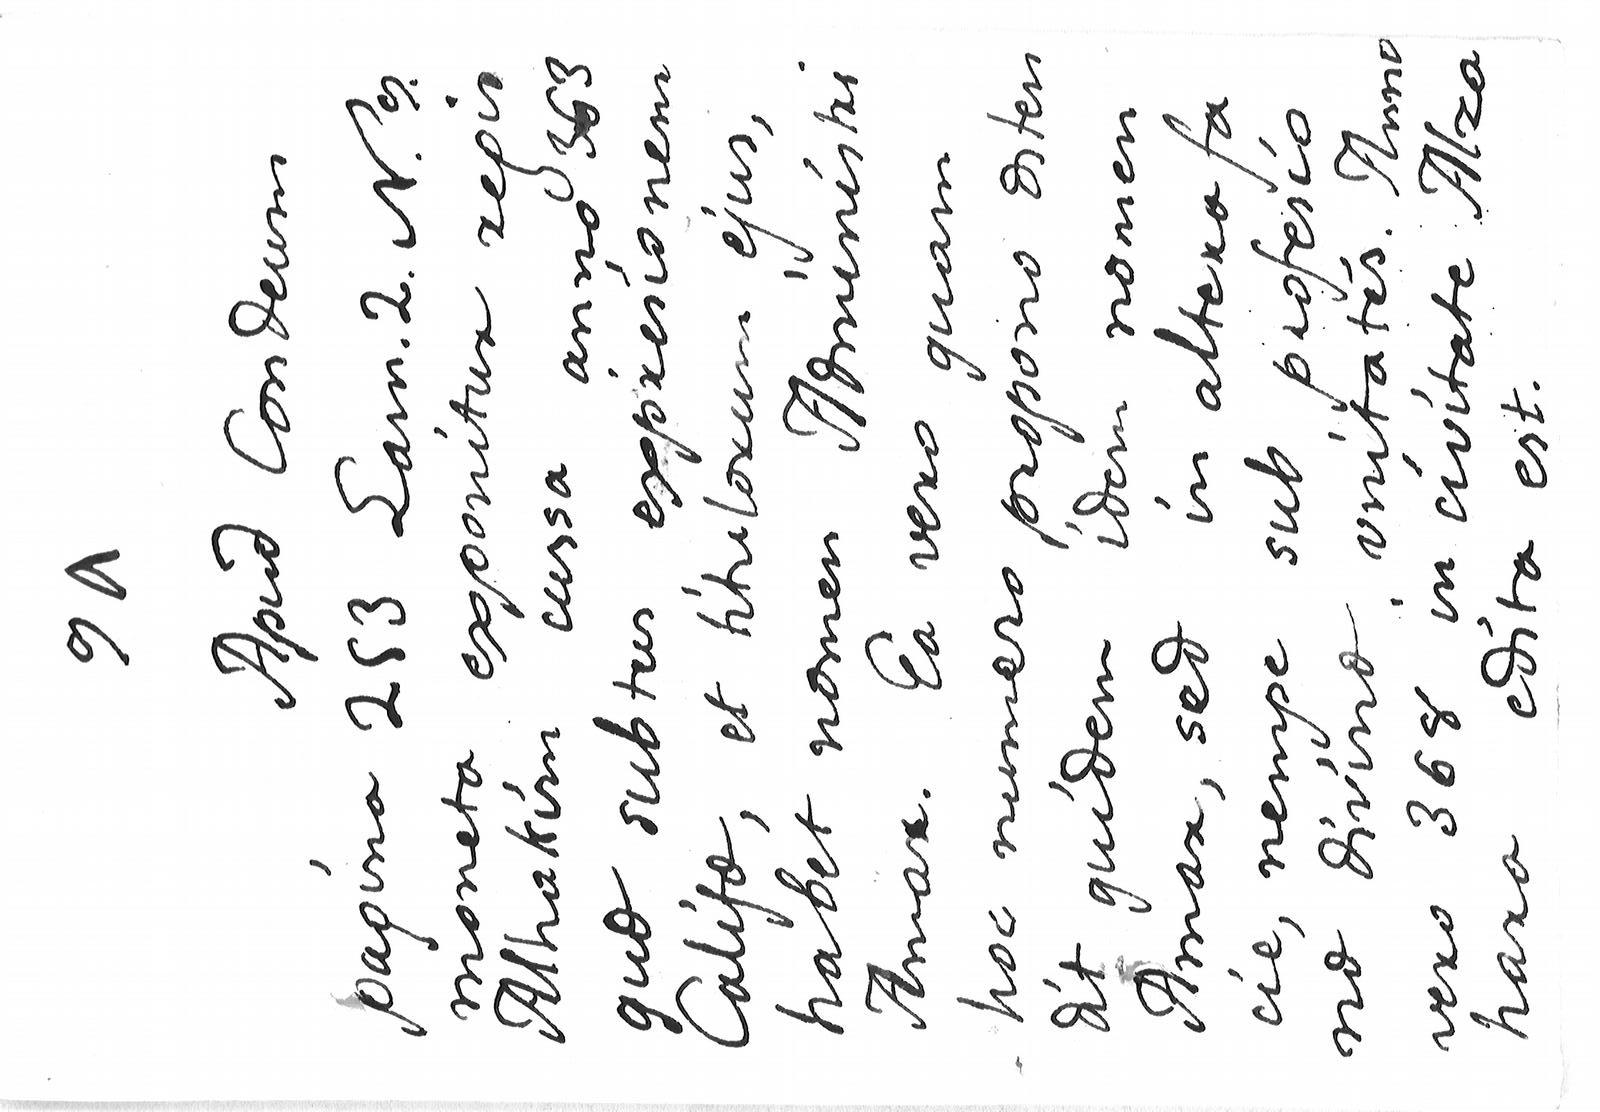 9 A
Apud Condeum
pagina 253 Lam. 2. N. 9.
moneta exponitur regis
Alhakim cussa anno 363
quæ subtus expresionem
Califæ, et titulorum ejus,
habet nomen Administri
Amar. Ea vero quam
hoc numero propono osten
dit quidem idem nomen
Amar, sed in altera fa
cie, nempe sub profesio
næ divinæ unitatis. Anno
vero 368 in civitate Alza
hara edita est.